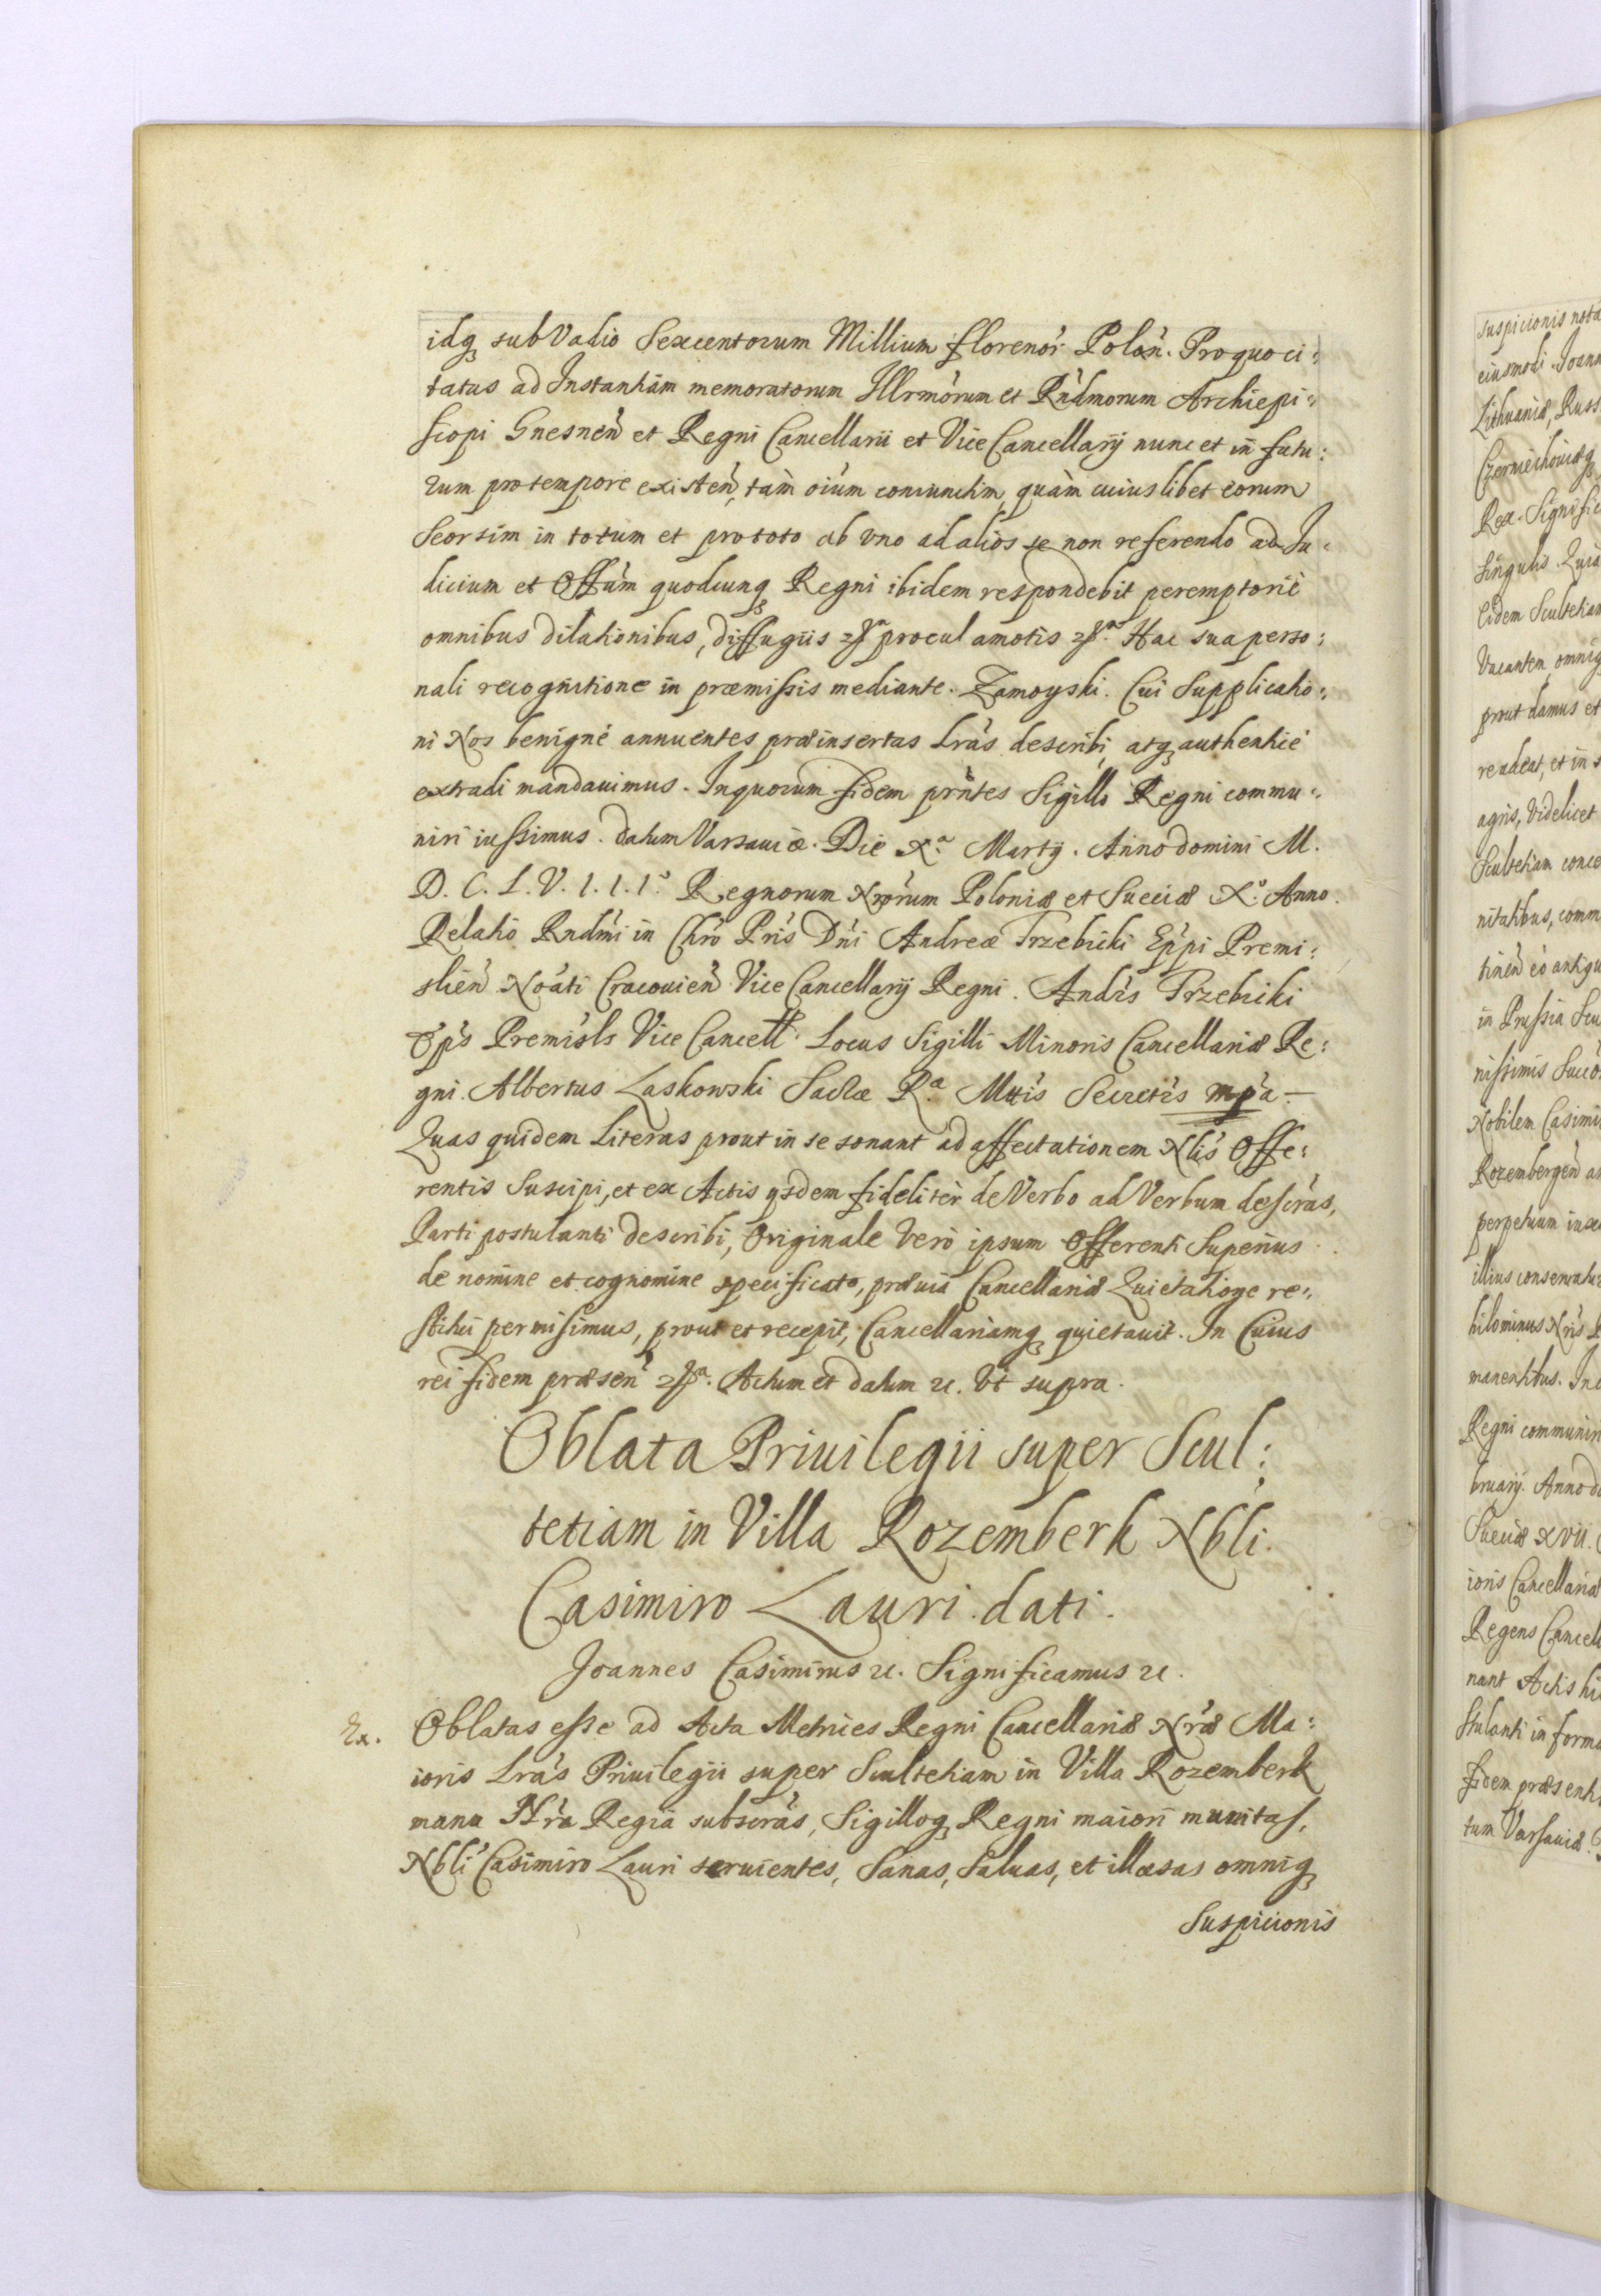 idq̃ sub Vadio Sexcentorum Millium florenor̀ Polon̄. Pro quo ci:
tatus ad Instantiam memoratorum Illrm̀orum et Rǹdmorum Archiepi:
scopi Gnesnen̄ et Regni Cancellarii et Vice Cancellarÿ nunc et in futu:
rum pro tempore existen̄, tàm oium̀ coniunctim, quàm cuiuslibet eorum
Seorsim in totum et pro toto ab vno ad alios se non referendo ad Iu:
dicium et Offum̀ quodcunq̨ Regni ibidem respondebit peremptoriè
omnibus dilationibus, diffugiis procul amotis Hac sua perso:
nali recognitione in præmissis mediante. Zamoyski. Cui Supplicatio:
ni Nos benignè annuentes præinsertas Lràs describi, atq̨ authenticè
extradi mandauimus. In quorum fidem prǹtes Sigillo Regni commu:
niri iussimus. datum Varsauiæ. Die X.ª Martÿ. Anno domini M.
D. C. L. V. I. I. I.º Regnorum Nròrum Poloniæ et Sueciæ X.º Anno.
Relatio Rndm̀i in Chrò Pris̀ Dǹi Andreæ Trzebicki Epp̀i Premi:
slien̄ Noàti Cracouien̄ Vice Cancellarÿ Regni. Andrs̀ Trzebicki
Eps̀ Premisls̀ Vice Cancell. Locus Sigilli Minoris Cancellariæ Re:
gni. Albertus Laskowski Sacræ R.æ Mttis̀ Secretrs̀ mpà.
Quas quidem Literas prout in se sonant ad affectationem Nlis̀ Offe:
rentis Suscipi, et ex Actis ysdem fidelitèr de Verbo ad Verbum descràs,
Parti postulanti describi, Originale verò ipsum Offerenti Superius
de nomine et cognomine specificato, præuiâ Cancellariæ Quietatione re:
stitui permisimus, prout et recepit, Cancellariamq̨ quietauit. In Cuius
rei fidem præsen̄ Actum et datum &c. Vt supra.
Oblata Priuilegii super Scul:
tetiam in Villa Rozemberk Nbli.
Casimiro Lauri. dati.
Joannes Casimirus &c. Significamus &c.
Ex. Oblatas esse ad Acta Metrices Regni Cancellariæ Nræ̀ Ma:
ioris Lràs Priuilegii super Scultetiam in Villa Rozemberk
manu Nrà Regia subscràs, Sigilloq̨ Regni maiori munitas,
Nblì Casimiro Lauri seruientes, Sanas, Saluas, et illæsas omniq̨
Suspicionis
suspicionis nota
eiusmodi. Joann
Lithuaniæ, Russ
Czerniechouiæq̨
Rex. Signific
singulis. Quia
Eidem Scultetiam
Vacantem, omniq̨
prout damus et
readeat, et in
agris, videlicet
Scultetiam conce
nitatibus, comm
tinen̄ eò antiqu
in Prussia Scu
nissimis Succò
Nobilem Casimi
Rozembergen̄ a
perpetuum
illius conseruatu
hilominus Nris̀
manentibus. In
Regni communiri
bruarÿ. Anno do
Sueciæ XVII.
ioris Cancellariæ
Regens Cancell
nant Actis hi
stulanti in forma
Fidem præsenti
tum Varsauiæ.